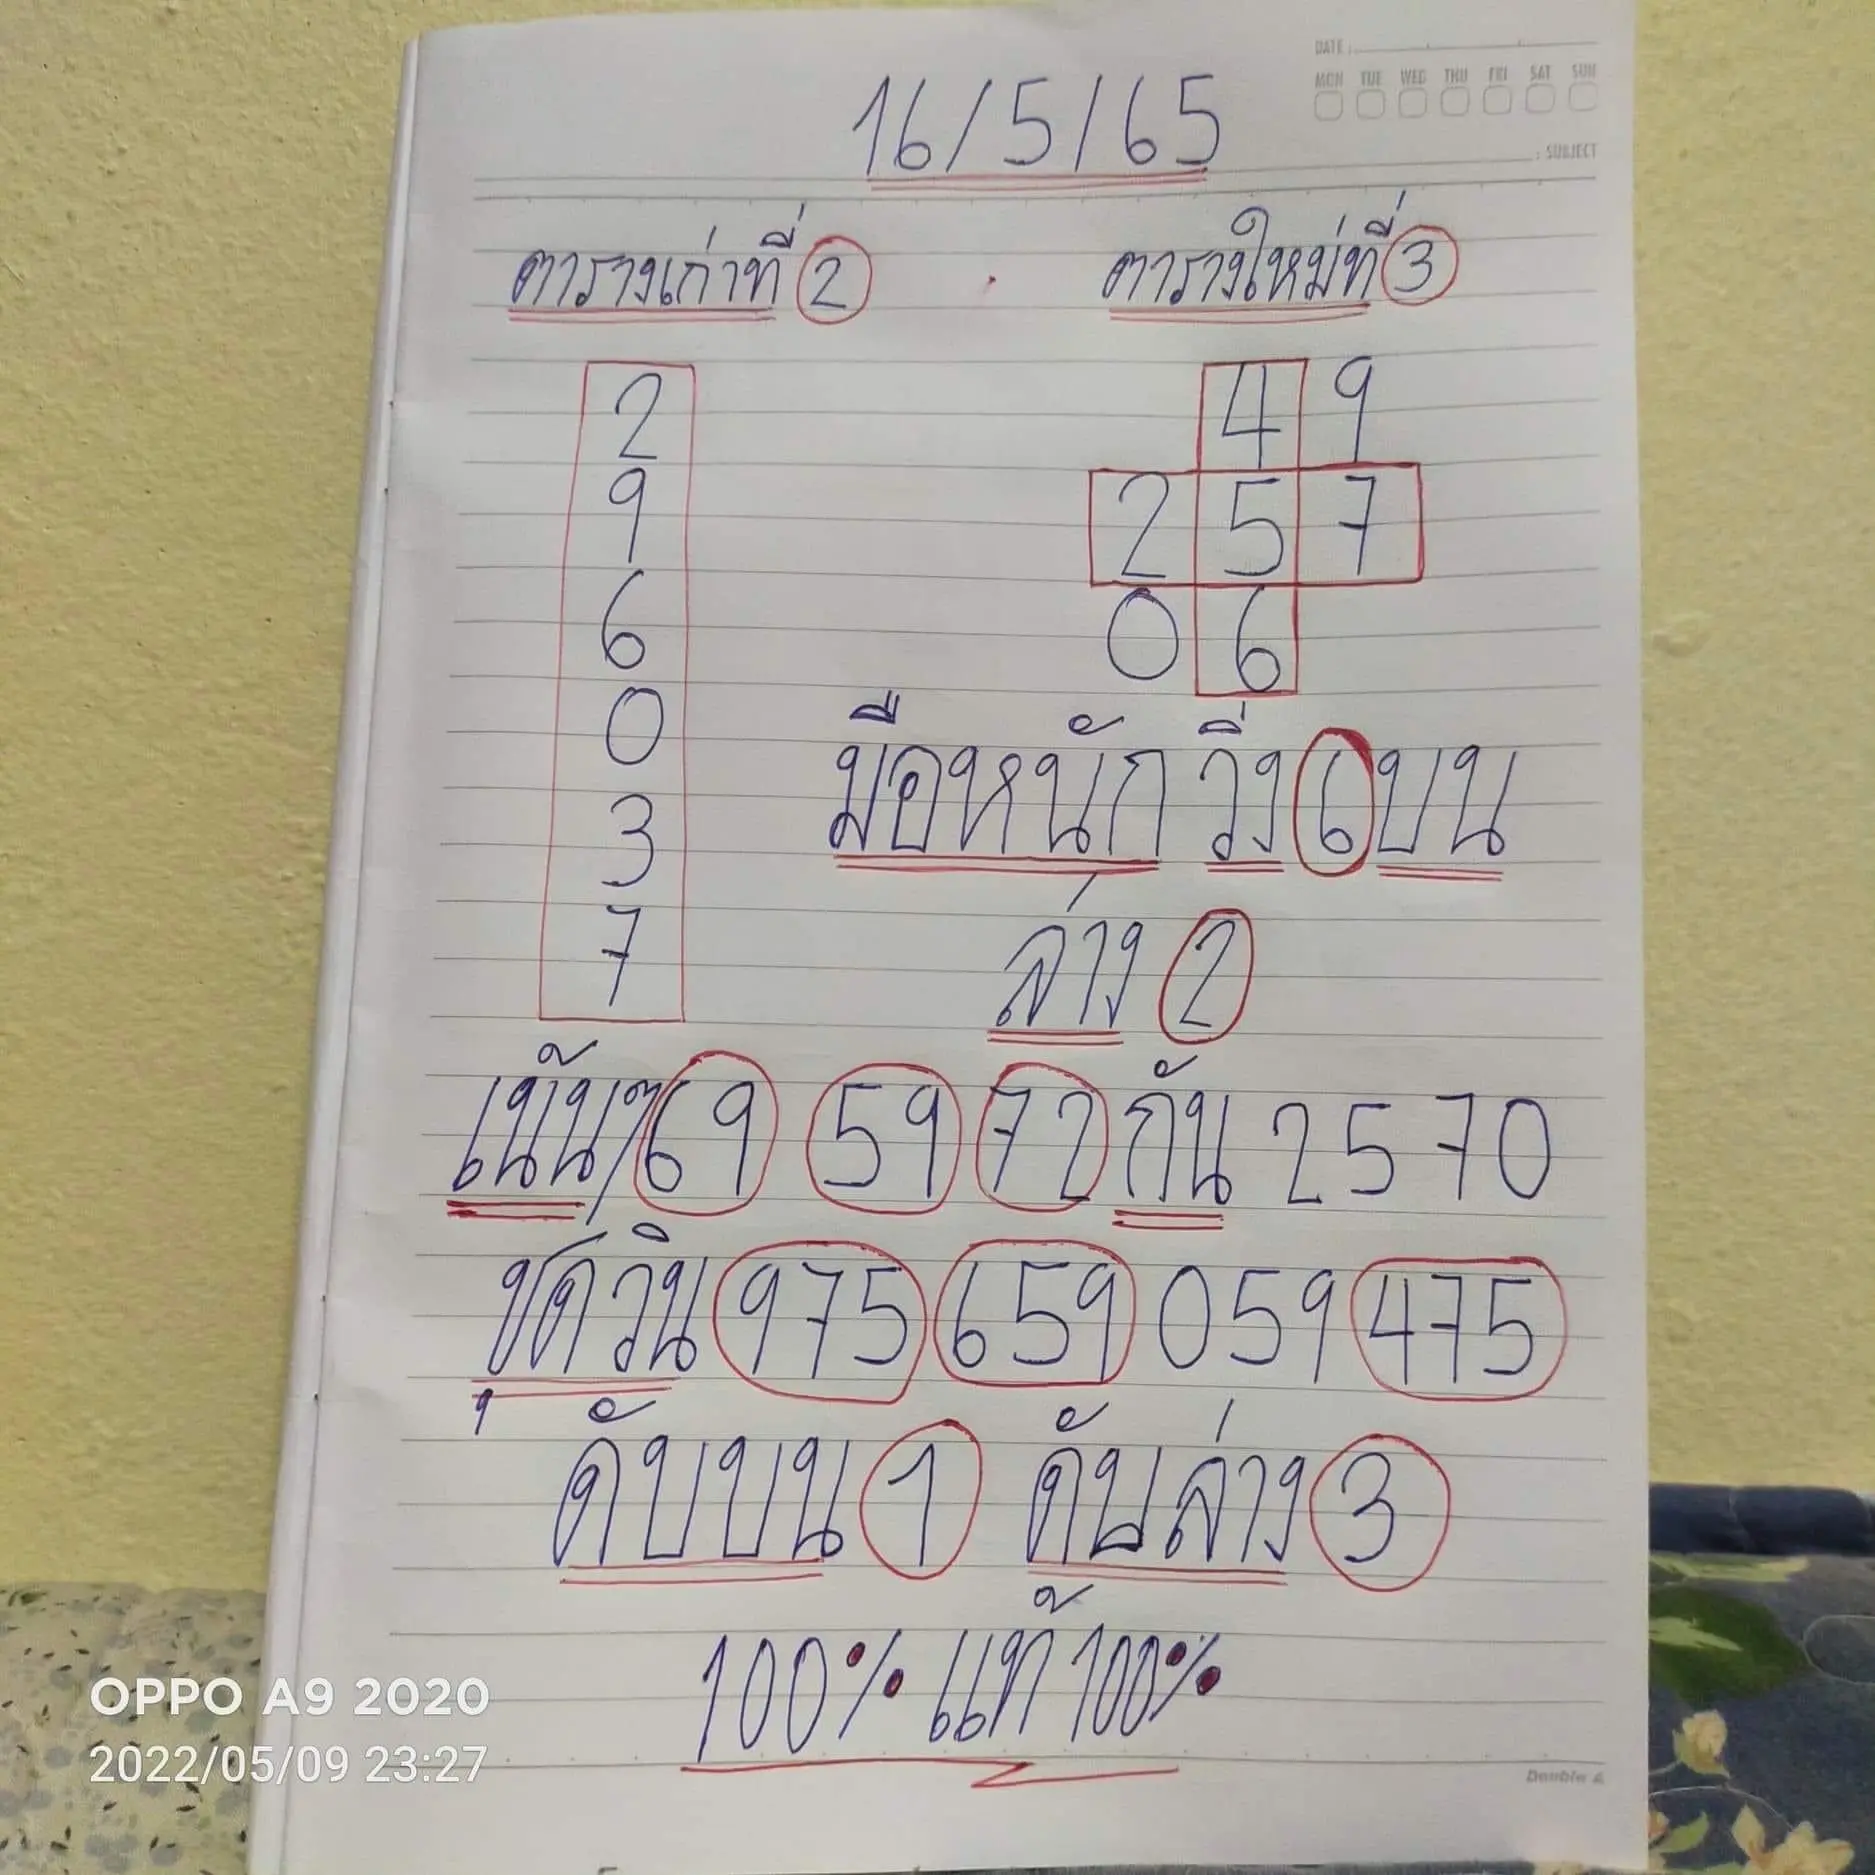 DATE :
MON TUE WED THU FRI SAT SUN
: SUBJECT
16/5/65
ตารางเก่าที่ 2 ตารางใหม่ที่ 3
2
9
6
0
3
7
4 9
2 5 7
0 6
มือหนัก วิ่ง 6 บน
ล่าง 2
เน้นๆ 69 59 72 กัน 2570
ชุดวิน 975 659 059 475
ดับบน 1 ดับล่าง 3
100% แท้ 100%
Double A
OPPO A9 2020
2022/05/09 23:27